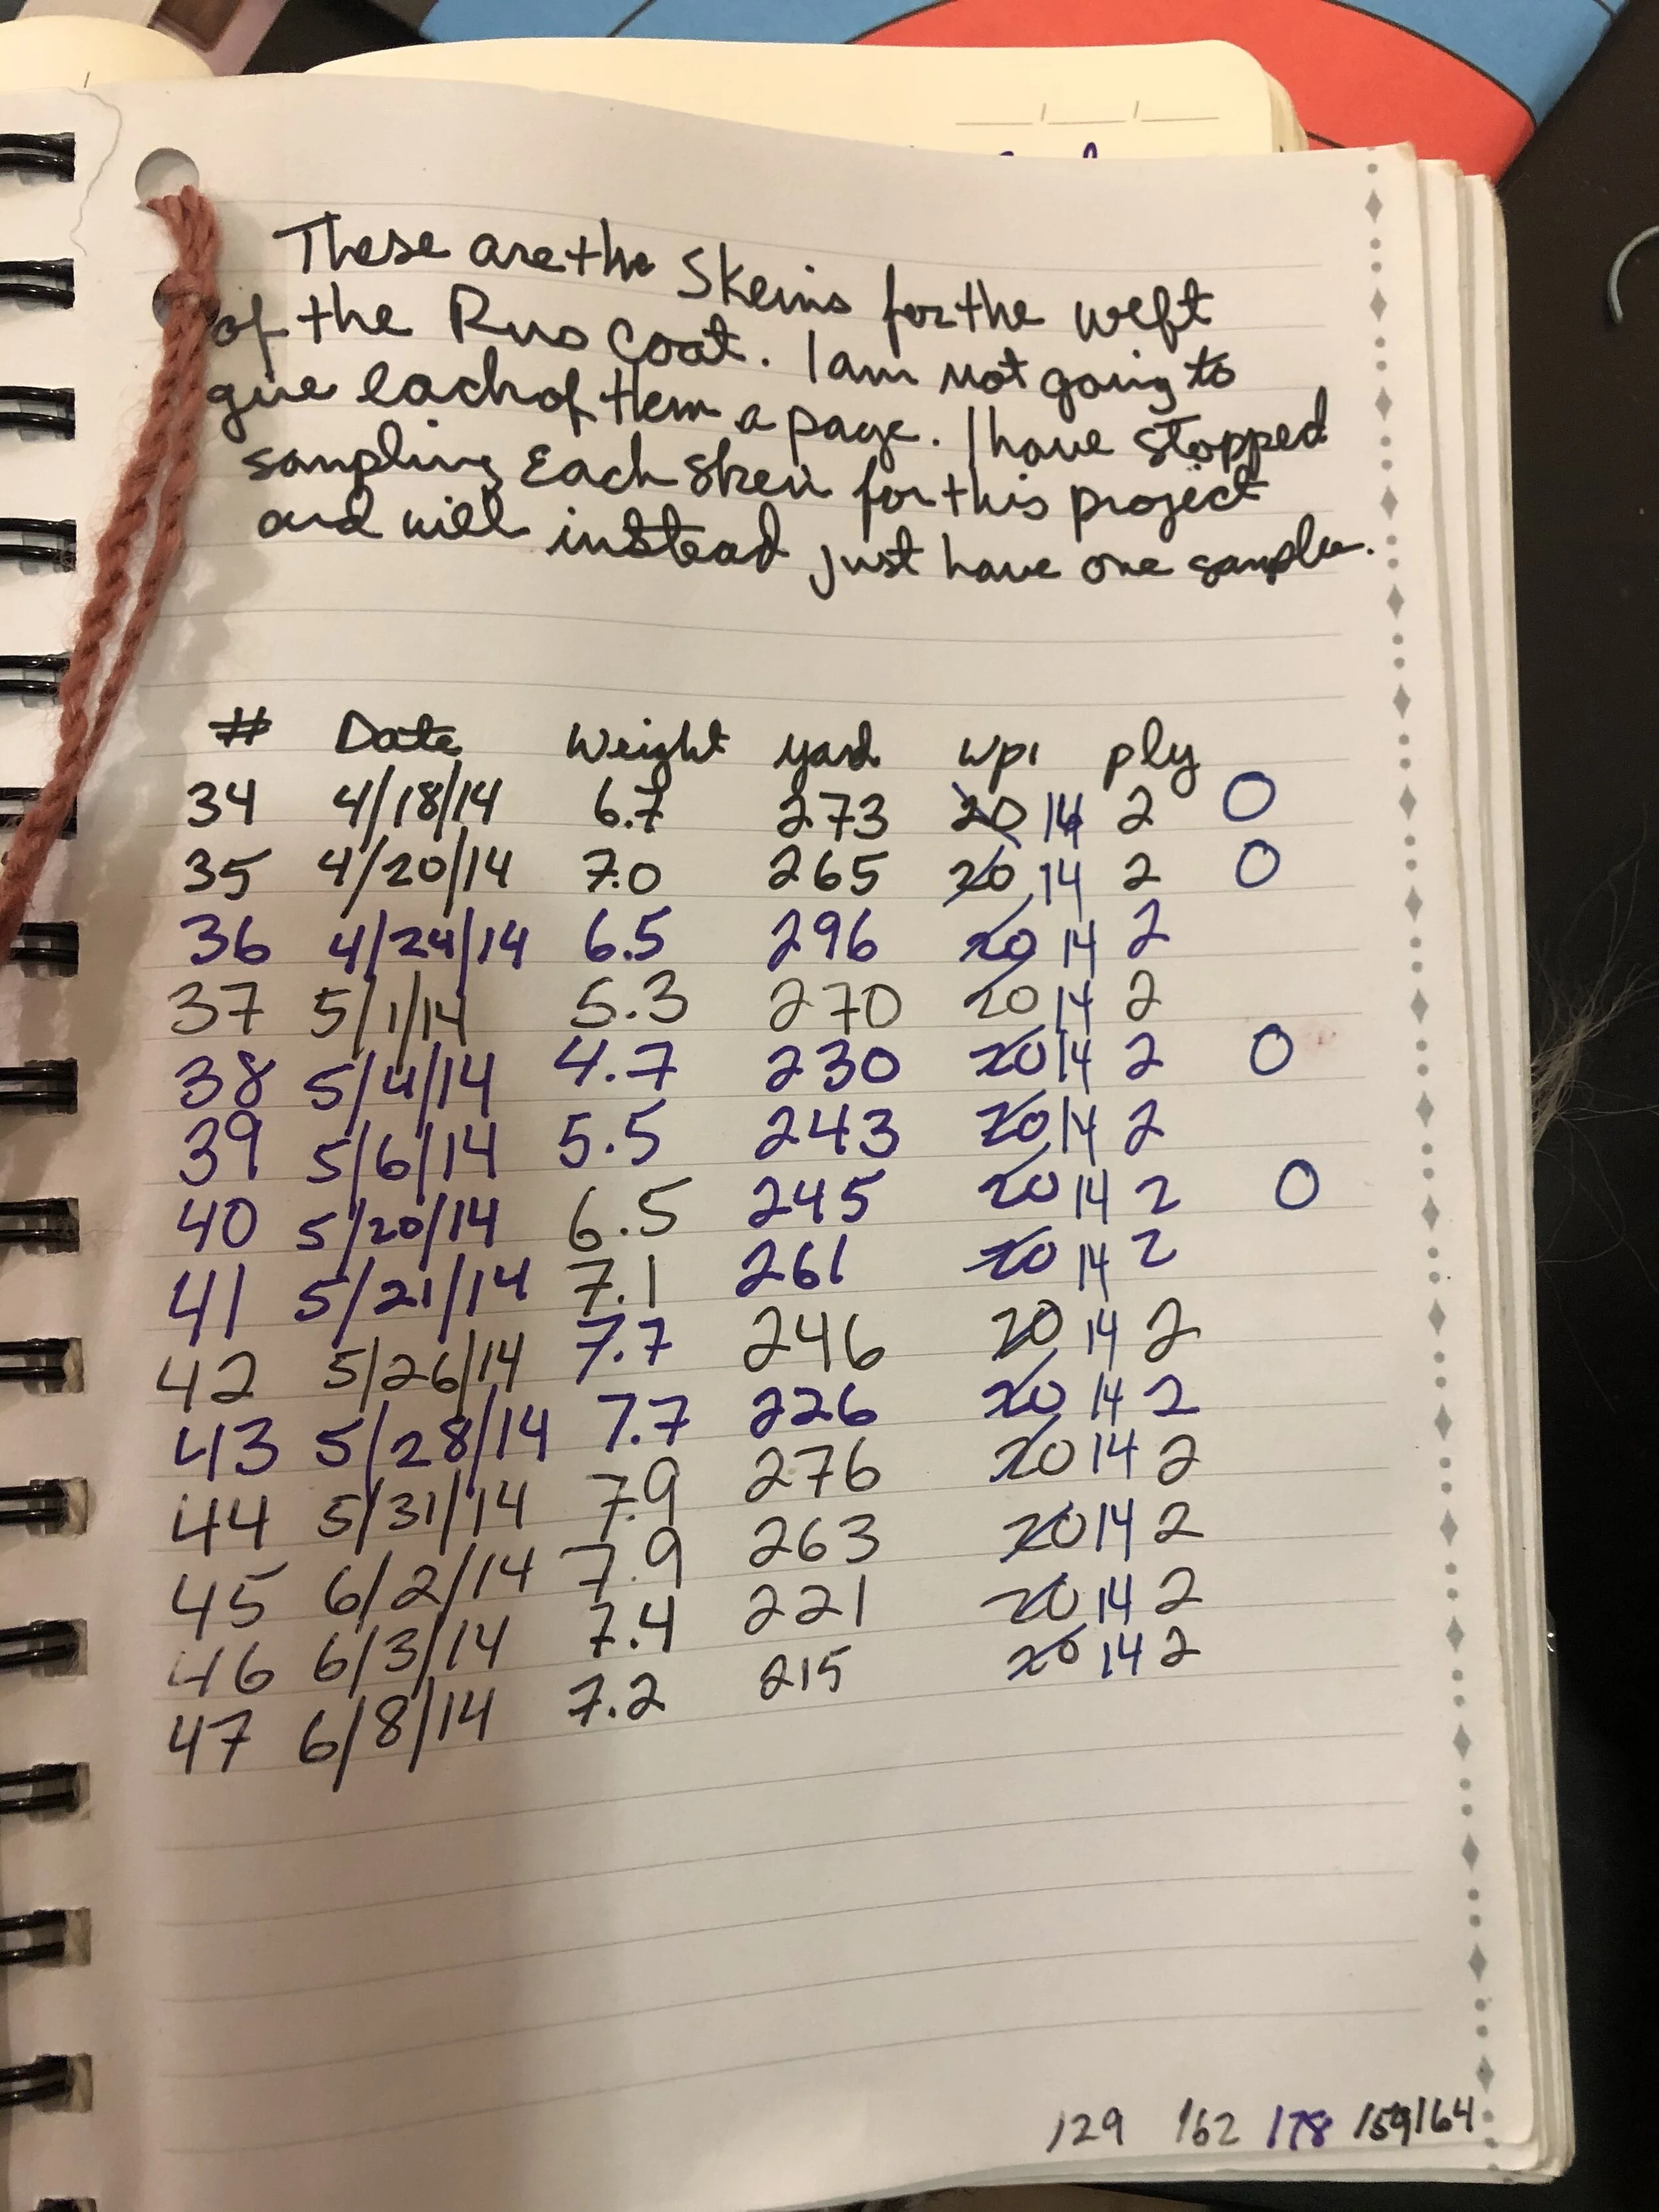 These are the Skeins for the weft
of the Rus Coat. I am not going to
give each of them a page. I have stopped
sampling Each skein for this project
and will instead just have one sample.
# Date Weight yard wpi ply
34 4/18/14 6.7 273 20 14 2 O
35 4/20/14 7.0 265 20 14 2 O
36 4/24/14 6.5 296 20 14 2
37 5/1/14 5.3 270 20 14 2
38 5/4/14 4.7 230 20 14 2 O
39 5/6/14 5.5 243 20 14 2
40 5/20/14 6.5 245 20 14 2 O
41 5/21/14 7.1 261 20 14 2
42 5/26/14 7.7 246 20 14 2
43 5/28/14 7.7 226 20 14 2
44 5/31/14 7.9 276 20 14 2
45 6/2/14 7.9 263 20 14 2
46 6/3/14 7.4 221 20 14 2
47 6/8/14 7.2 215 20 14 2
129 162 178 159 164